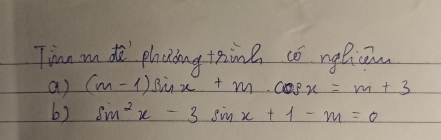 Tìm m để phương trình có nghiệm
a) (m-1)sin x + m cos x = m + 3
b) sin²x - 3 sin x + 1 - m = 0